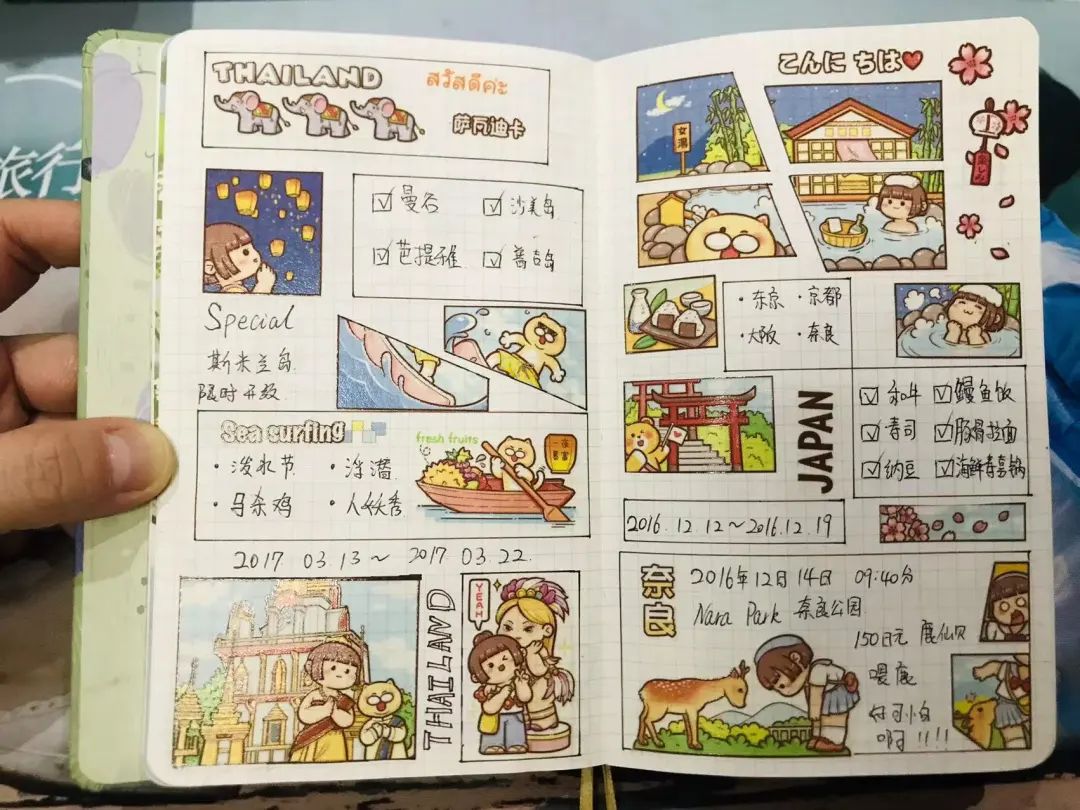 旅行
THAILAND
สวัสดีค่ะ
萨瓦迪卡
曼谷 沙美岛
芭提雅 普吉岛
Special
斯米兰岛
限时开放
Sea surfing
泼水节 浮潜
马杀鸡 人妖秀
fresh fruits
一夜
暴富
2017 03.13～2017 03.22
YEAH
THAILAND
こんにちは
女湯
東京 京都
大阪 奈良
JAPAN
和牛 鳗鱼饭
寿司 豚骨拉面
纳豆 海鲜寿喜锅
2016.12.12～2016.12.19
奈良
2016年12月14日 09:40分
Nara Park 奈良公园
150日元 鹿仙贝
喂鹿
好可怕
啊!!!!